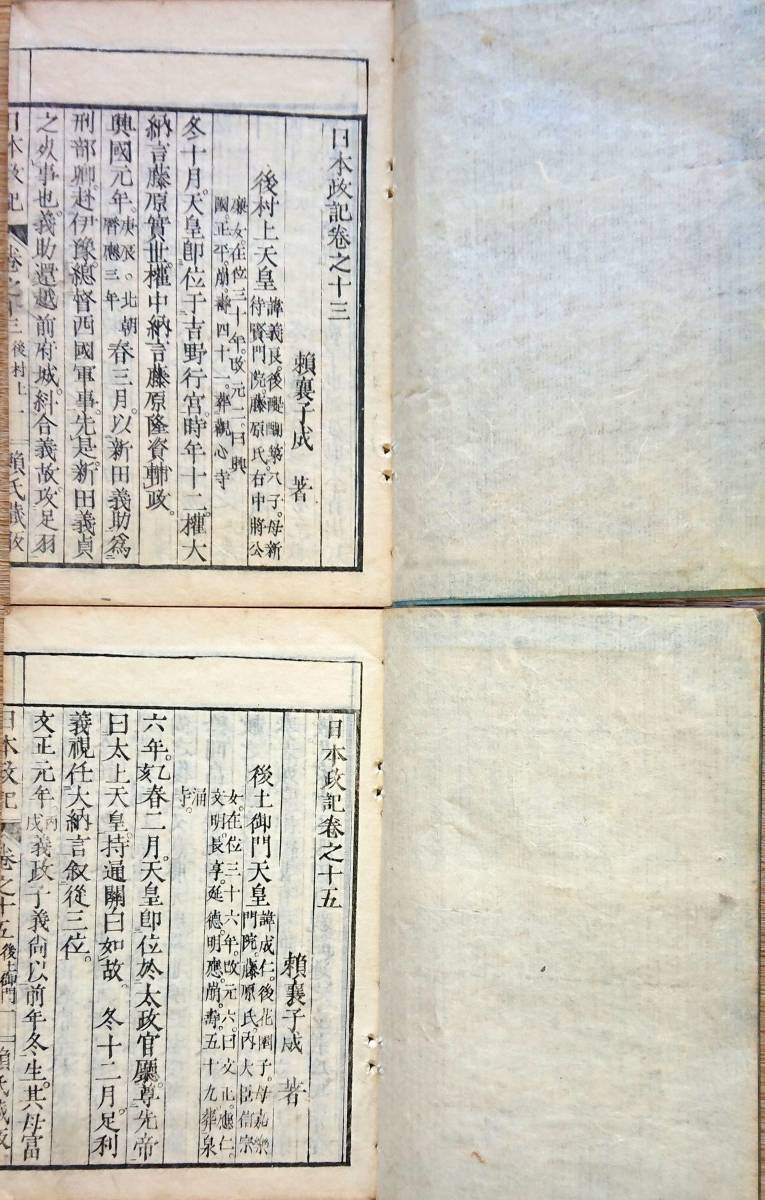 日本政記卷之十三
賴襄子成 著
後村上天皇
諱義良。後醍醐第八子。母新
待賢門院。藤原氏。右中將公
廉女。在位三十年。改元二。曰興
國。正平。崩。壽四十一。葬觀心寺
冬十月。天皇即位于吉野行宮。時年十二。權大
納言藤原實世。權中納言藤原隆資輔政。
興國元年。庚辰。北朝曆應三年 春三月。以新田義助爲
刑部卿。赴伊豫。總督西國軍事。先是。新田義貞
之攻事也。義助還越前府城。糾合義故。攻足羽
日本政記 卷之十三 後村上 一 賴氏藏板
日本政記卷之十五
賴襄子成 著
後土御門天皇
諱成仁。後花園子。母嘉樂
門院。藤原氏。內大臣信宗
女。在位三十六年。改元六。曰文正。應仁。
文明。長享。延德。明應。崩。壽五十九。葬泉
涌寺。
六年。乙亥。春二月。天皇即位於太政官廳。尊先帝
曰太上天皇。持通關白如故。 冬十二月。足利
義視任大納言。敘從三位。
文正元年 丙戌 義政子義尚以前年冬生。其母富
日本政記 卷之十五 後土御門 一 賴氏藏板